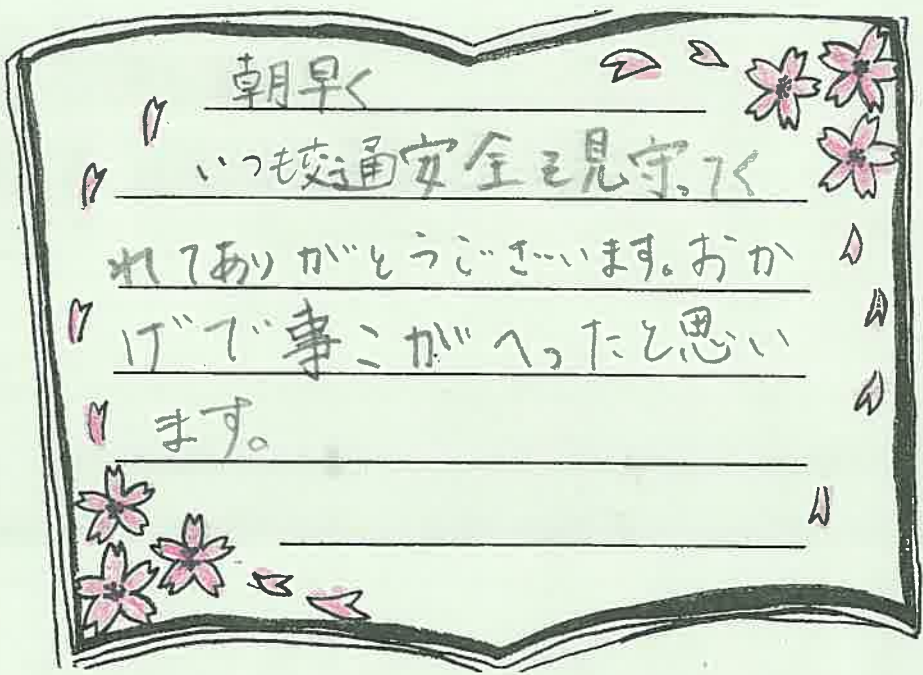 朝早く
いつも交通安全を見守ってく
れてありがとうございます。おか
げで事こがへったと思い
ます。